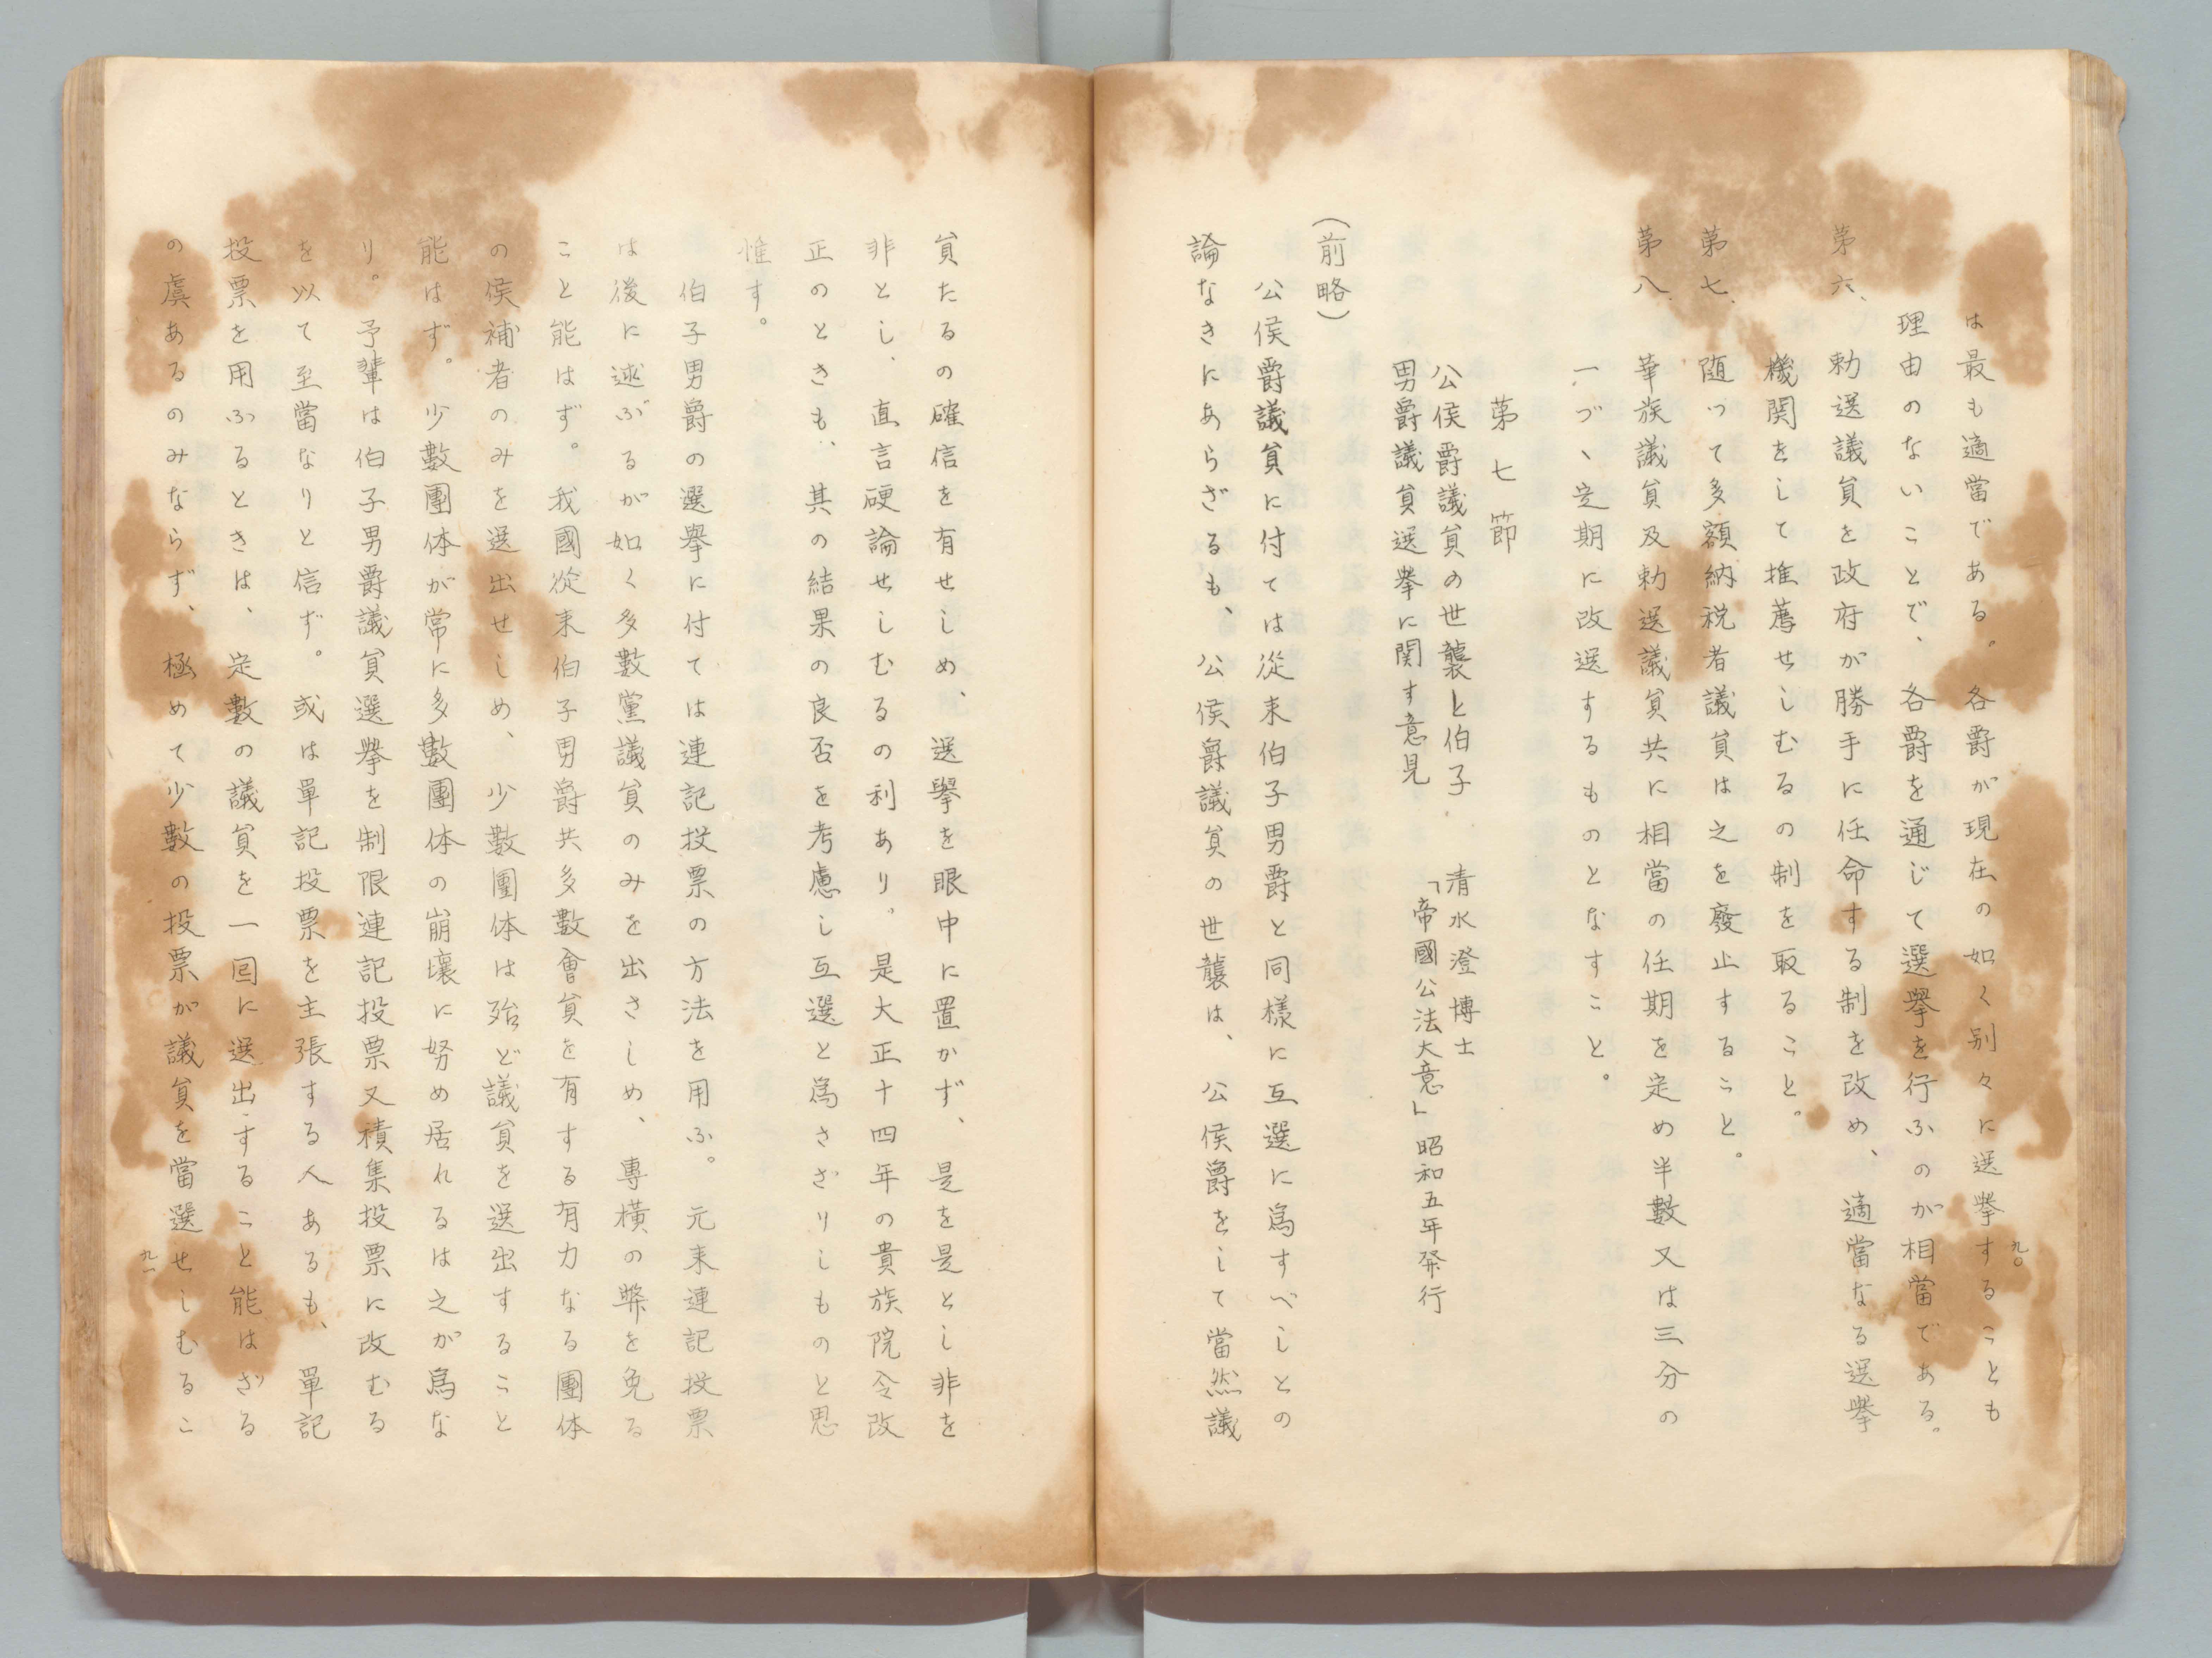 は最も適當である。各爵が現在の如く別々に送挙することも
理由のないことで、各爵を通じて選擧を行ふのが相當である。
第六、勅送議員を政府が勝手に任命する制を改め、適當なる送擧
機関をして推薦せしむるの制を取ること。
第七、随つて多額納税者議員は之を廢止すること。
第八、華族議員及勅送議員共に相當の任期を定め半數又は三分の
一づゝ定期に改送するものとなすこと。
第七節
公侯爵議員の世襲と伯子
男爵議員送挙に関す意見
清水澄博士
「帝國公法大意」昭和五年発行
(前略)
公侯爵議員に付ては從来伯子男爵と同樣に互選に爲すべしとの
論なきにあらざるも、公侯爵議員の世襲は、公侯爵をして當然議
九〇
員たるの確信を有せしめ、送擧を眼中に置かず、是を是とし非を
非とし、直言硬論せしむるの利あり。是大正十四年の貴族院令改
正のときも、其の結果の良否を考慮し互選と爲さざりしものと思
惟す。
伯子男爵の選擧に付ては連記投票の方法を用ふ。元来連記投票
は後に述ぶるが如く多數黨議員のみを出さしめ、專横の弊を免る
こと能はず。我國從来伯子男爵共多數會員を有する有力なる團体
の候補者のみを送出せしめ、少數團体は殆ど議員を送出すること
能はず。少數團体が常に多數團体の崩壞に努め居れるは之が爲な
り。予輩は伯子男爵議員選擧を制限連記投票又積集投票に改むる
を以て至當なりと信ず。或は單記投票を主張する人あるも、單記
投票を用ふるときは、定數の議員を一回に選出することと能はざる
の虞あるのみならず、極めて少數の投票が議員を當選せしむるこ
九一